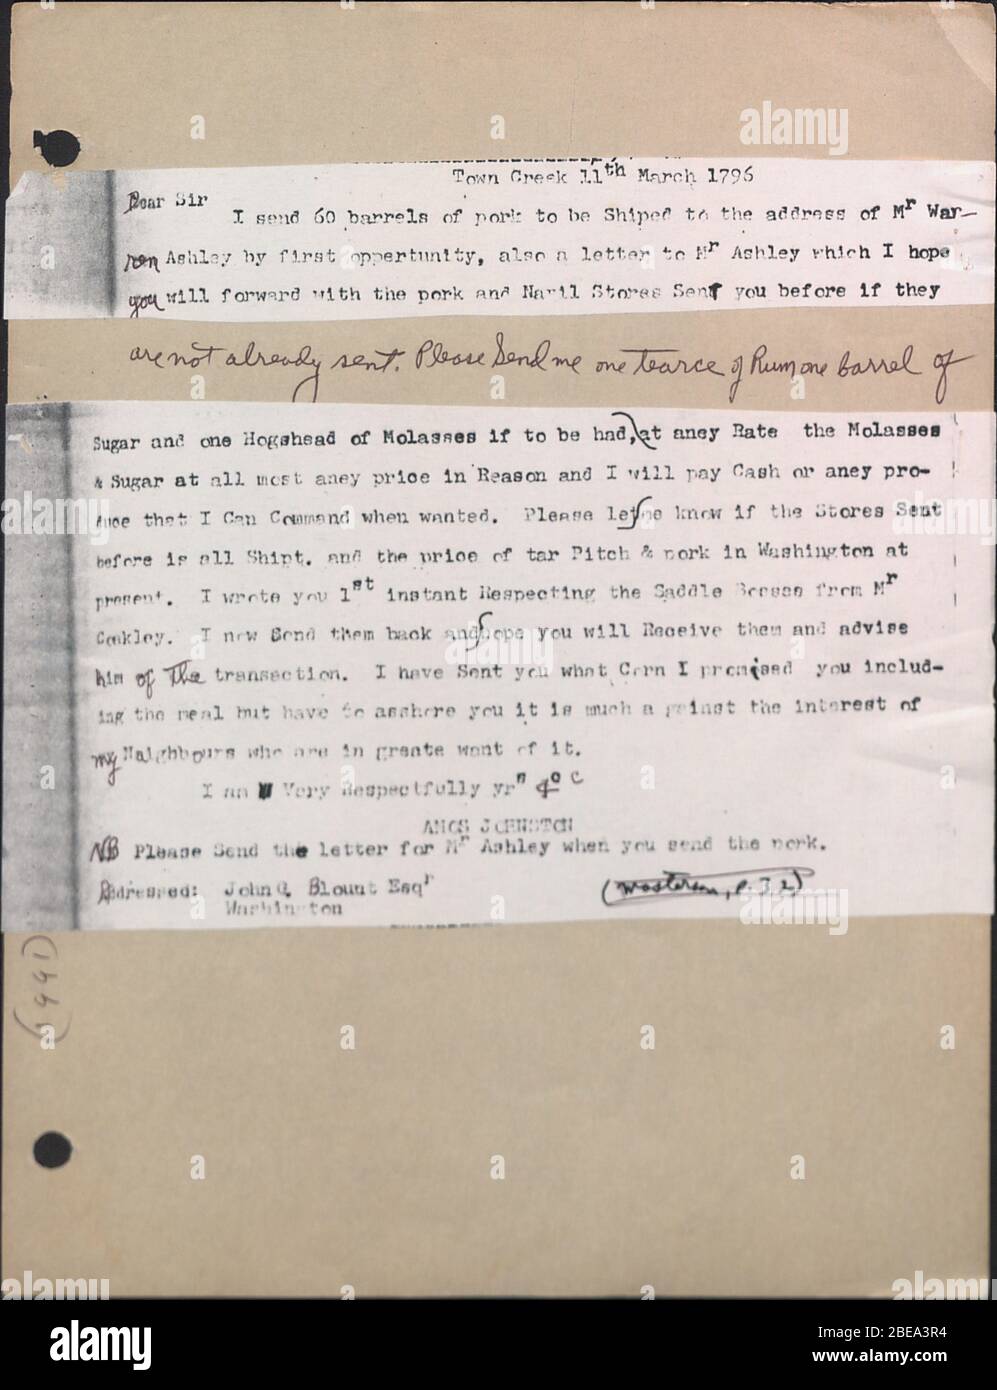 Town Creek 11th March 1796
Dear Sir
I send 60 barrels of pork to be Shiped to the address of Mr War-
ren Ashley by first oppertunity, also a letter to Mr Ashley which I hope
you will forward with the pork and Navil Stores Sent you before if they
are not already sent. Please Send me one tearce of Rum one barrel of
Sugar and one Hogshead of Molasses if to be had, at aney Rate the Molasses
& Sugar at all most aney price in Reason and I will pay Cash or aney pro-
duce that I Can Command when wanted. Please let me know if the Stores Sent
before is all Shipt. and the price of tar Pitch & pork in Washington at
present. I wrote you 1st instant Respecting the Saddle from Mr
Cookley. I now Send them back and hope you will Receive them and advise
him of The transection. I have Sent you what Corn I promised you includ-
ing the meal but have to asshore you it is much a gainst the interest of
my Naighbours who are in greate want of it.
I am Very Respectfully yrn &c
AMOS JOHNSTON
NB Please Send the letter for Mr Ashley when you send the pork.
Addressed: John G. Blount Esqr
Washington
(Masterson, p. 32)
(1661)
a alamy
alamy
Image ID: 2BEA3R4
www.alamy.com